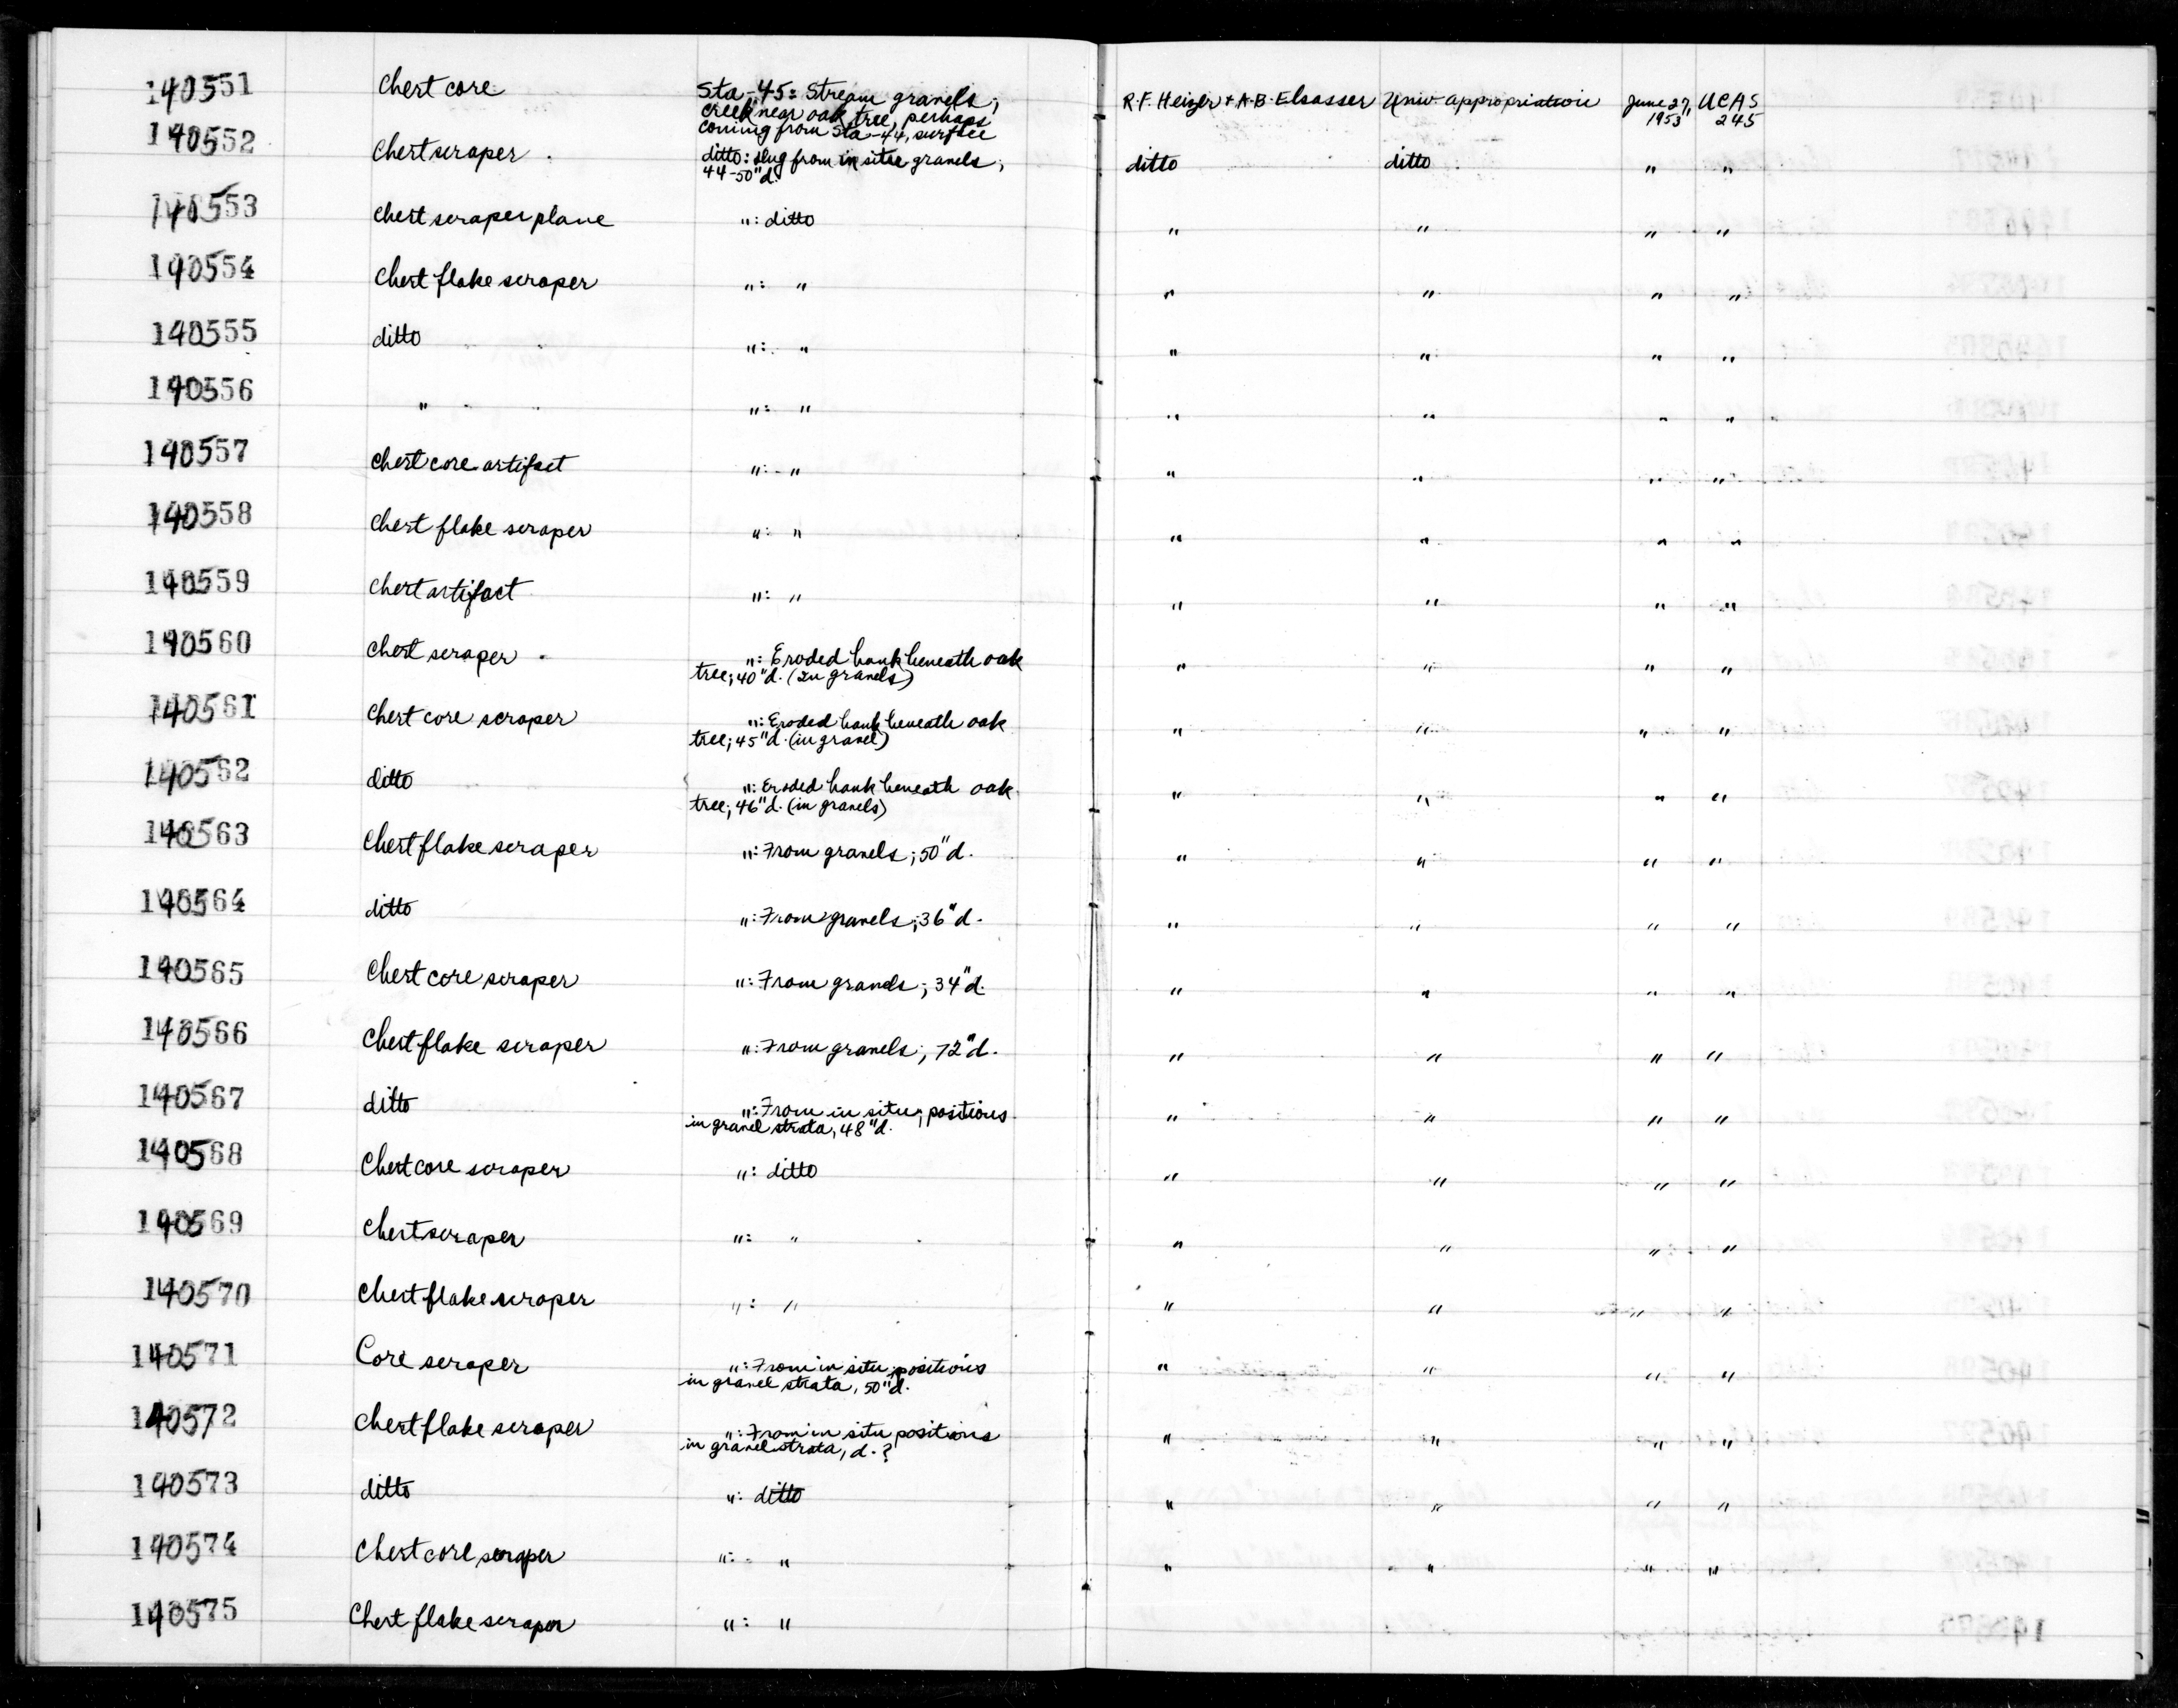 140551 Chert core Sta-45: Stream gravels; R.F. Heizer + A.B. Elsasser Univ. appropriation June 27, UCAS
creek near oak tree, perhaps 1953 245
coming from Sta-44, surface
140552 Chert scraper ditto: dug from in situ gravels; ditto ditto " "
44-50" d.
140553 Chert scraper plane ": ditto " " " "
140554 Chert flake scraper ": " " " " "
140555 ditto ": " " " " "
140556 " ": " " " " "
140557 Chert core artifact ": " " " " "
140558 Chert flake scraper ": " " " " "
140559 Chert artifact ": " " " " "
140560 Chert scraper ": Eroded bank beneath oak " " " "
tree; 40" d. (In gravels)
140561 Chert core scraper ": Eroded bank beneath oak " " " "
tree; 45" d. (in gravel)
140562 ditto ": Eroded bank beneath oak " " " "
tree; 46" d. (in gravels)
140563 Chert flake scraper ": From gravels; 50" d. " " " "
140564 ditto ": From gravels; 36" d. " " " "
140565 Chert core scraper ": From gravels; 34" d. " " " "
140566 Chert flake scraper ": From gravels; 72" d. " " " "
140567 ditto ": From in situ; positions " " " "
in gravel strata, 48" d.
140568 Chert core scraper ": ditto " " " "
140569 Chert scraper ": " " " " "
140570 Chert flake scraper ": " " " " "
140571 Core scraper ": From in situ; positions " " " "
in gravel strata, 50" d.
140572 Chert flake scraper ": From in situ positions " " " "
in gravel strata, d. ?
140573 ditto ": ditto " " " "
140574 Chert core scraper ": " " " " "
140575 Chert flake scraper ": "